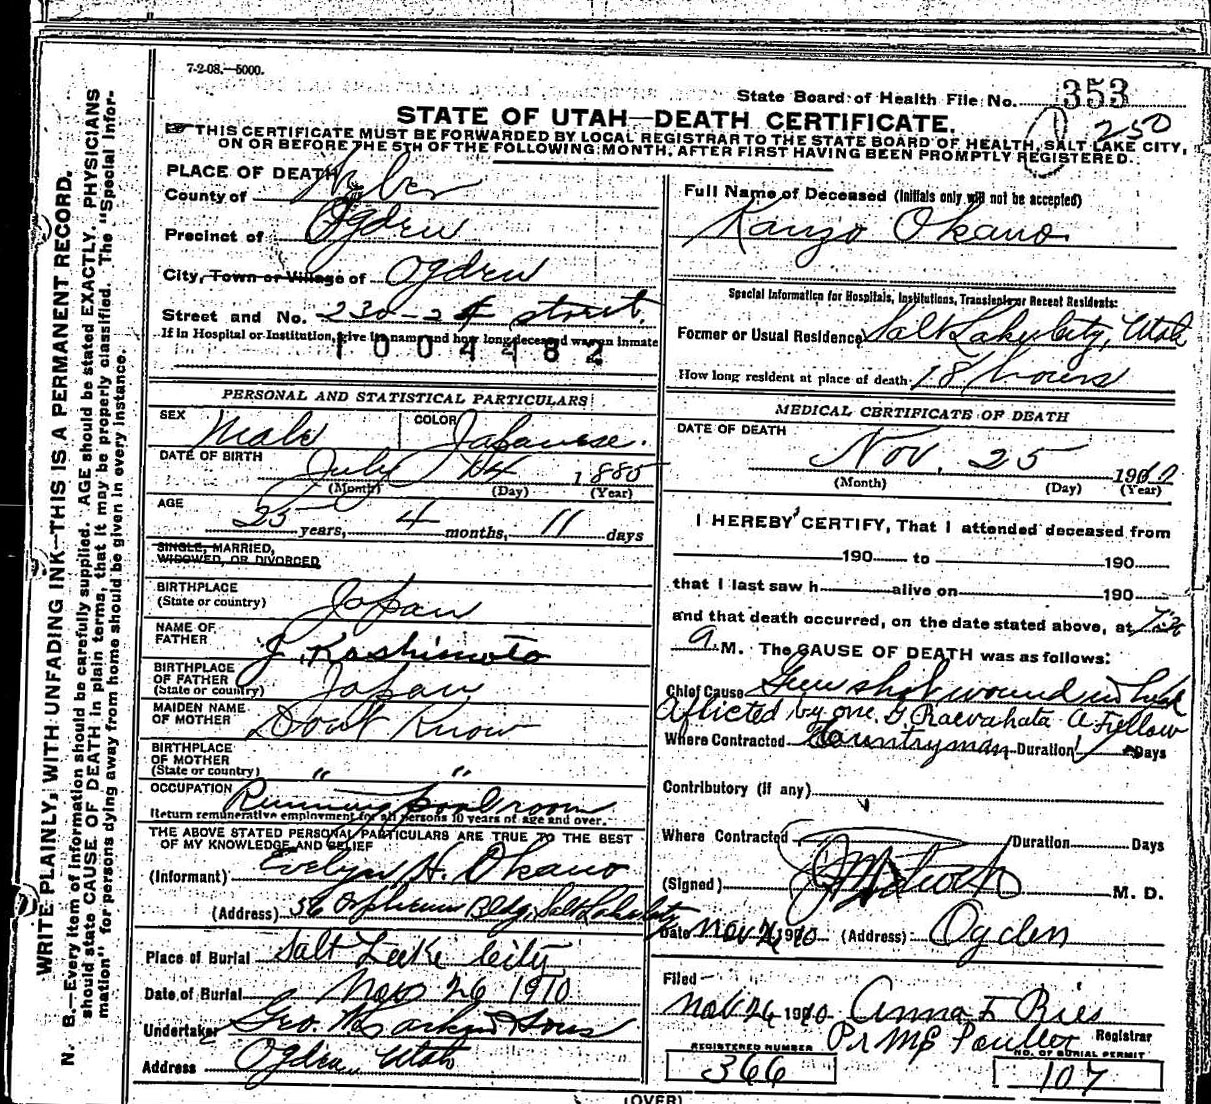 7-2-08.—5000.
State Board of Health File No. 353
STATE OF UTAH—DEATH CERTIFICATE.
250
THIS CERTIFICATE MUST BE FORWARDED BY LOCAL REGISTRAR TO THE STATE BOARD OF HEALTH, SALT LAKE CITY,
ON OR BEFORE THE 5TH OF THE FOLLOWING MONTH, AFTER FIRST HAVING BEEN PROMPTLY REGISTERED.
WRITE PLAINLY, WITH UNFADING INK—THIS IS A PERMANENT RECORD.
N. B.—Every item of information should be carefully supplied. AGE should be stated EXACTLY. PHYSICIANS
should state CAUSE OF DEATH in plain terms, that it may be properly classified. The "Special Infor-
mation" for persons dying away from home should be given in every instance.
PLACE OF DEATH
County of Weber
Precinct of Ogden
City, Town or Village of Ogden
Street and No. 230-24 street.
If in Hospital or Institution, give its name and how long deceased was an inmate
1004482
PERSONAL AND STATISTICAL PARTICULARS
SEX Male COLOR Japanese.
DATE OF BIRTH July 14 1885
(Month) (Day) (Year)
AGE
25 years, 4 months, 11 days
SINGLE, MARRIED,
WIDOWED, OR DIVORCED
BIRTHPLACE
(State or country) Japan
NAME OF
FATHER J. Kashimoto
BIRTHPLACE
OF FATHER
(State or country) Japan
MAIDEN NAME
OF MOTHER Dont Know
BIRTHPLACE
OF MOTHER
(State or country) " "
OCCUPATION Running pool room
Return remunerative employment for all persons 10 years of age and over.
THE ABOVE STATED PERSONAL PARTICULARS ARE TRUE TO THE BEST
OF MY KNOWLEDGE AND BELIEF
(Informant) Evelyn H. Okano
(Address) 36 Orpheum Bldg, Salt Lake City
Place of Burial Salt Lake City
Date of Burial Nov 26 1910
Undertaker Geo. Larkin & Sons
Address Ogden Utah
Full Name of Deceased (Initials only will not be accepted)
Kanzo Okano
Special Information for Hospitals, Institutions, Transients or Recent Residents:
Former or Usual Residence Salt Lake City, Utah
How long resident at place of death 18 hours
MEDICAL CERTIFICATE OF DEATH
DATE OF DEATH
Nov. 25 1910
(Month) (Day) (Year)
I HEREBY CERTIFY, That I attended deceased from
190 to 190
that I last saw h alive on 190
and that death occurred, on the date stated above, at
a. M. The CAUSE OF DEATH was as follows:
Chief Cause Gun shot wound in
Aflicted by one G. Raevahata a Fellow
Where Contracted Countryman Duration Days
Contributory (if any)
Where Contracted Duration Days
(Signed) M. D.
Date Nov 26 1910 (Address) Ogden
Filed
Nov 26 1910 Anna F Ries
Registrar
REGISTERED NUMBER
366
NO. OF BURIAL PERMIT
107
(OVER)